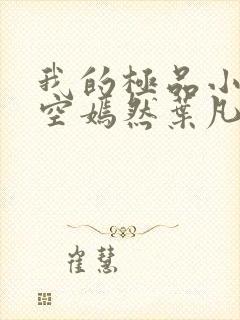 我的極品小
空嫣然葉凡
崔慧